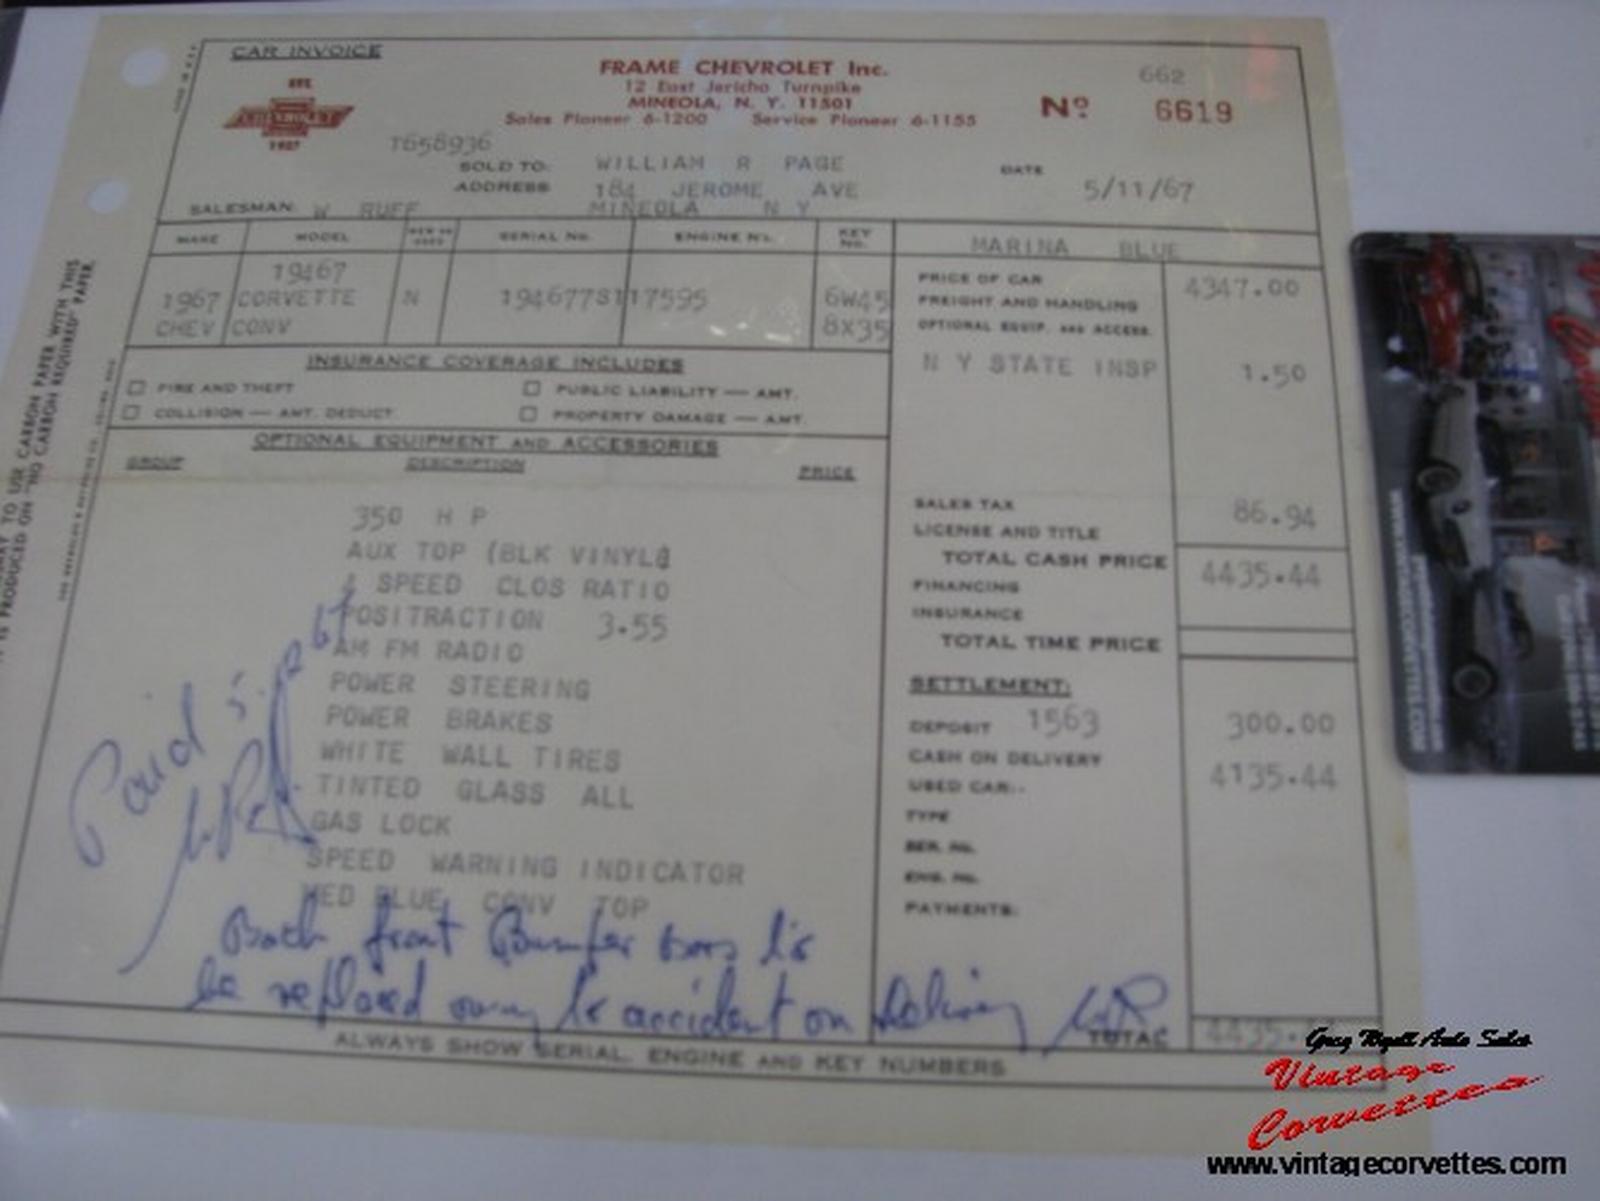 CAR INVOICE
FRAME CHEVROLET Inc.
12 East Jericho Turnpike
MINEOLA, N. Y. 11501
Sales Pioneer 6-1200 Service Pioneer 6-1155
662
Nº 6619
CHEVROLET
T658936
SOLD TO: WILLIAM R PAGE
ADDRESS 184 JEROME AVE
MINEOLA N Y
DATE
5/11/67
SALESMAN: W RUFF
MAKE MODEL NEW OR USED SERIAL No. ENGINE No. KEY No.
19467
1967 CORVETTE N 194677S117595 6W45
CHEV CONV 8X35
MARINA BLUE
PRICE OF CAR 4347.00
FREIGHT AND HANDLING
OPTIONAL EQUIP. AND ACCESS.
N Y STATE INSP 1.50
INSURANCE COVERAGE INCLUDES
FIRE AND THEFT PUBLIC LIABILITY — AMT.
COLLISION — AMT. DEDUCT. PROPERTY DAMAGE — AMT.
OPTIONAL EQUIPMENT AND ACCESSORIES
GROUP DESCRIPTION PRICE
350 H P
AUX TOP (BLK VINYL
SPEED CLOS RATIO
POSITRACTION 3.55
AM FM RADIO
POWER STEERING
POWER BRAKES
WHITE WALL TIRES
TINTED GLASS ALL
GAS LOCK
SPEED WARNING INDICATOR
MED BLUE CONV TOP
Paid
Both front Bumper bars to
be replaced owing to accident on delivery WR
SALES TAX 86.94
LICENSE AND TITLE
TOTAL CASH PRICE 4435.44
FINANCING
INSURANCE
TOTAL TIME PRICE
SETTLEMENT:
DEPOSIT 1563 300.00
CASH ON DELIVERY 4135.44
USED CAR:-
TYPE
SER. No.
ENG. No.
PAYMENTS:
TOTAL 4435.44
ALWAYS SHOW SERIAL, ENGINE AND KEY NUMBERS
Vintage
Corvettes
www.vintagecorvettes.com